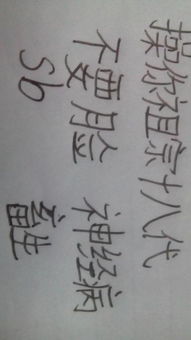 操你祖宗十八代
不要脸 神经病
Sb 畜牲